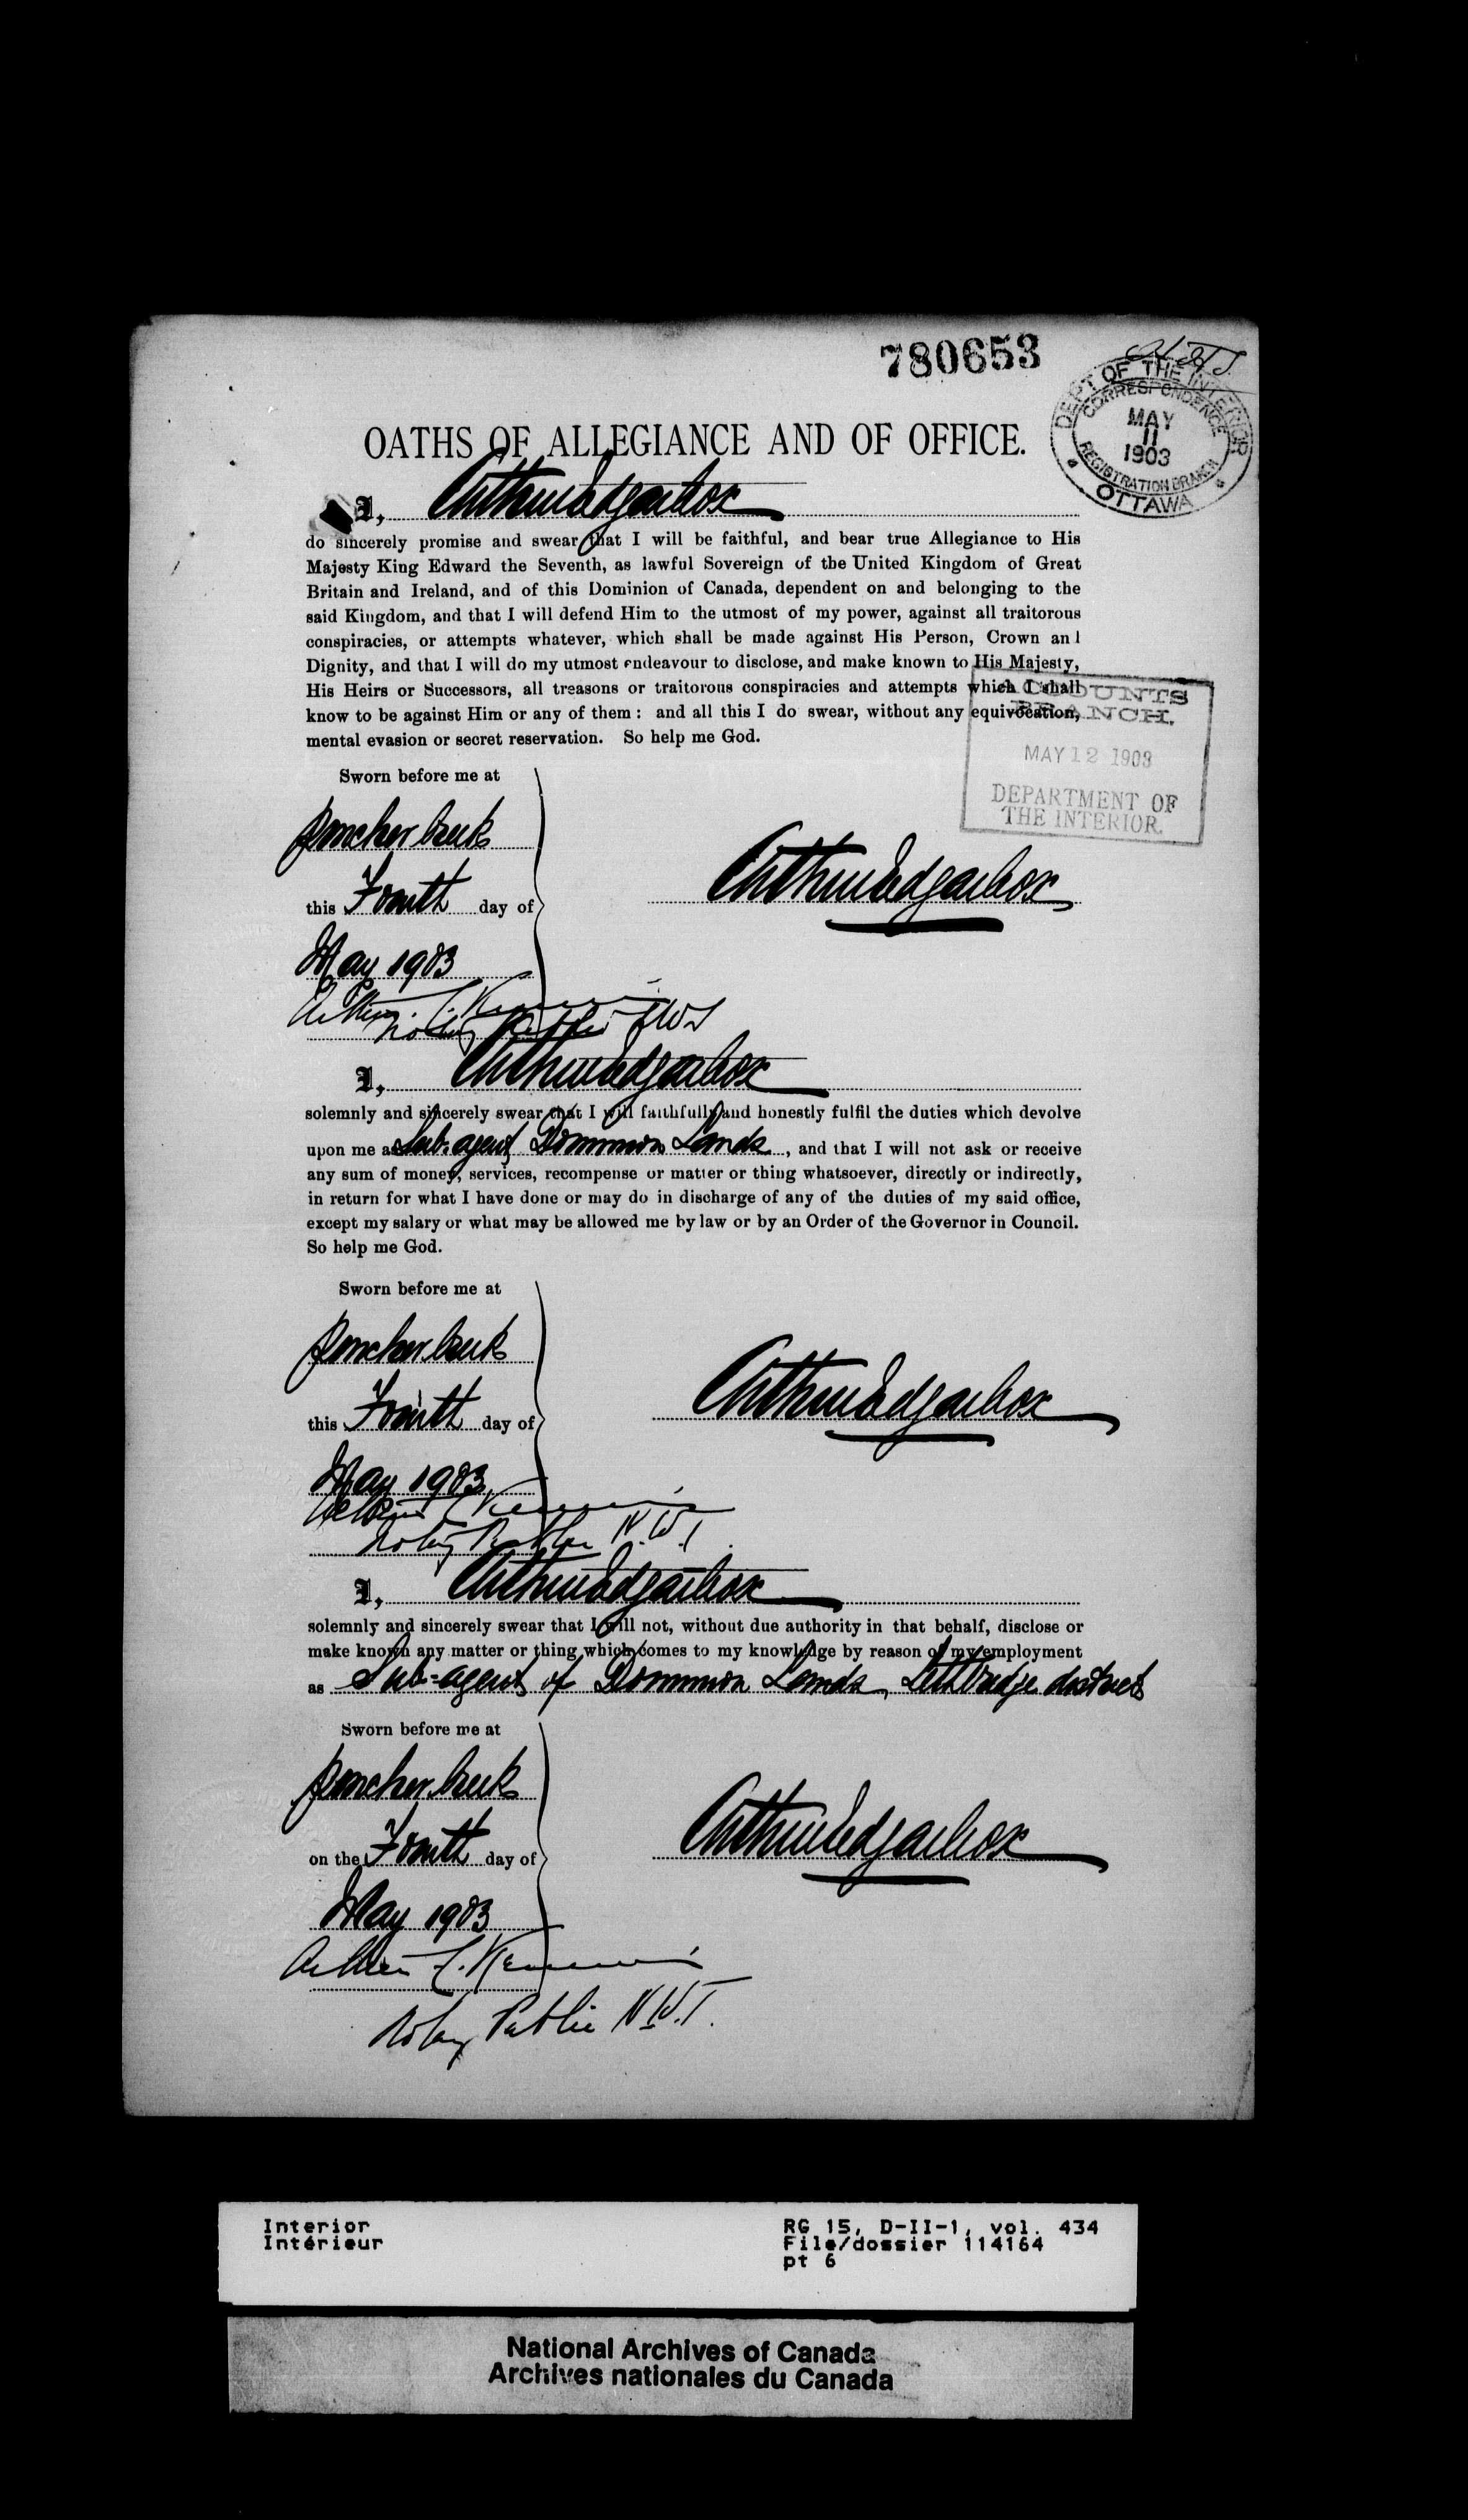 780653
DEPT OF THE INTERIOR
CORRESPONDENCE
MAY
11
1903
REGISTRATION BRANCH
OTTAWA
OATHS OF ALLEGIANCE AND OF OFFICE.
I, Arthur Edgar Cox
do sincerely promise and swear that I will be faithful, and bear true Allegiance to His
Majesty King Edward the Seventh, as lawful Sovereign of the United Kingdom of Great
Britain and Ireland, and of this Dominion of Canada, dependent on and belonging to the
said Kingdom, and that I will defend Him to the utmost of my power, against all traitorous
conspiracies, or attempts whatever, which shall be made against His Person, Crown and
Dignity, and that I will do my utmost endeavour to disclose, and make known to His Majesty,
His Heirs or Successors, all treasons or traitorous conspiracies and attempts which I shall
know to be against Him or any of them : and all this I do swear, without any equivocation,
mental evasion or secret reservation. So help me God.
ACCOUNTS
BRANCH.
MAY 12 1903
DEPARTMENT OF
THE INTERIOR.
Sworn before me at
Pincher Creek
this Fourth day of
Arthur Edgar Cox
May 1903
Notary Public NWT
I, Arthur Edgar Cox
solemnly and sincerely swear that I will faithfully and honestly fulfil the duties which devolve
upon me as Sub-agent Dominion Lands, and that I will not ask or receive
any sum of money, services, recompense or matter or thing whatsoever, directly or indirectly,
in return for what I have done or may do in discharge of any of the duties of my said office,
except my salary or what may be allowed me by law or by an Order of the Governor in Council.
So help me God.
Sworn before me at
Pincher Creek
this Fourth day of
Arthur Edgar Cox
May 1903
Notary Public N.W.T.
I, Arthur Edgar Cox
solemnly and sincerely swear that I will not, without due authority in that behalf, disclose or
make known any matter or thing which comes to my knowledge by reason of my employment
as Sub-agent of Dominion Lands, Lethbridge district
Sworn before me at
Pincher Creek
on the Fourth day of
Arthur Edgar Cox
May 1903
Notary Public N.W.T.
Interior
Intérieur
RG 15, D-II-1, vol. 434
File/dossier 114164
pt 6
National Archives of Canada
Archives nationales du Canada